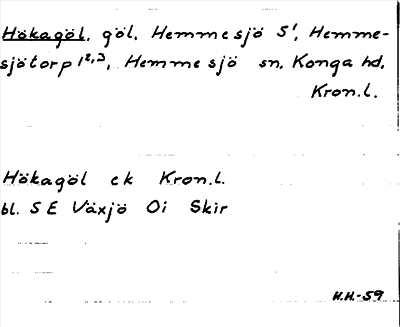 Hökagöl, göl, Hemmesjö S¹, Hemme-
sjötorp 1²,³, Hemmesjö sn, Konga hd,
Kron.l.
Hökagöl ek Kron.l.
bl. S E Växjö Oi Skir
H.H.-59